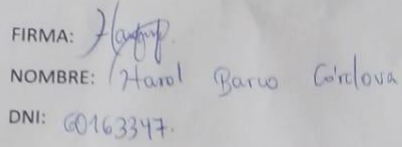 FIRMA:
NOMBRE: Harol Barco Córdova
DNI: 60163347.